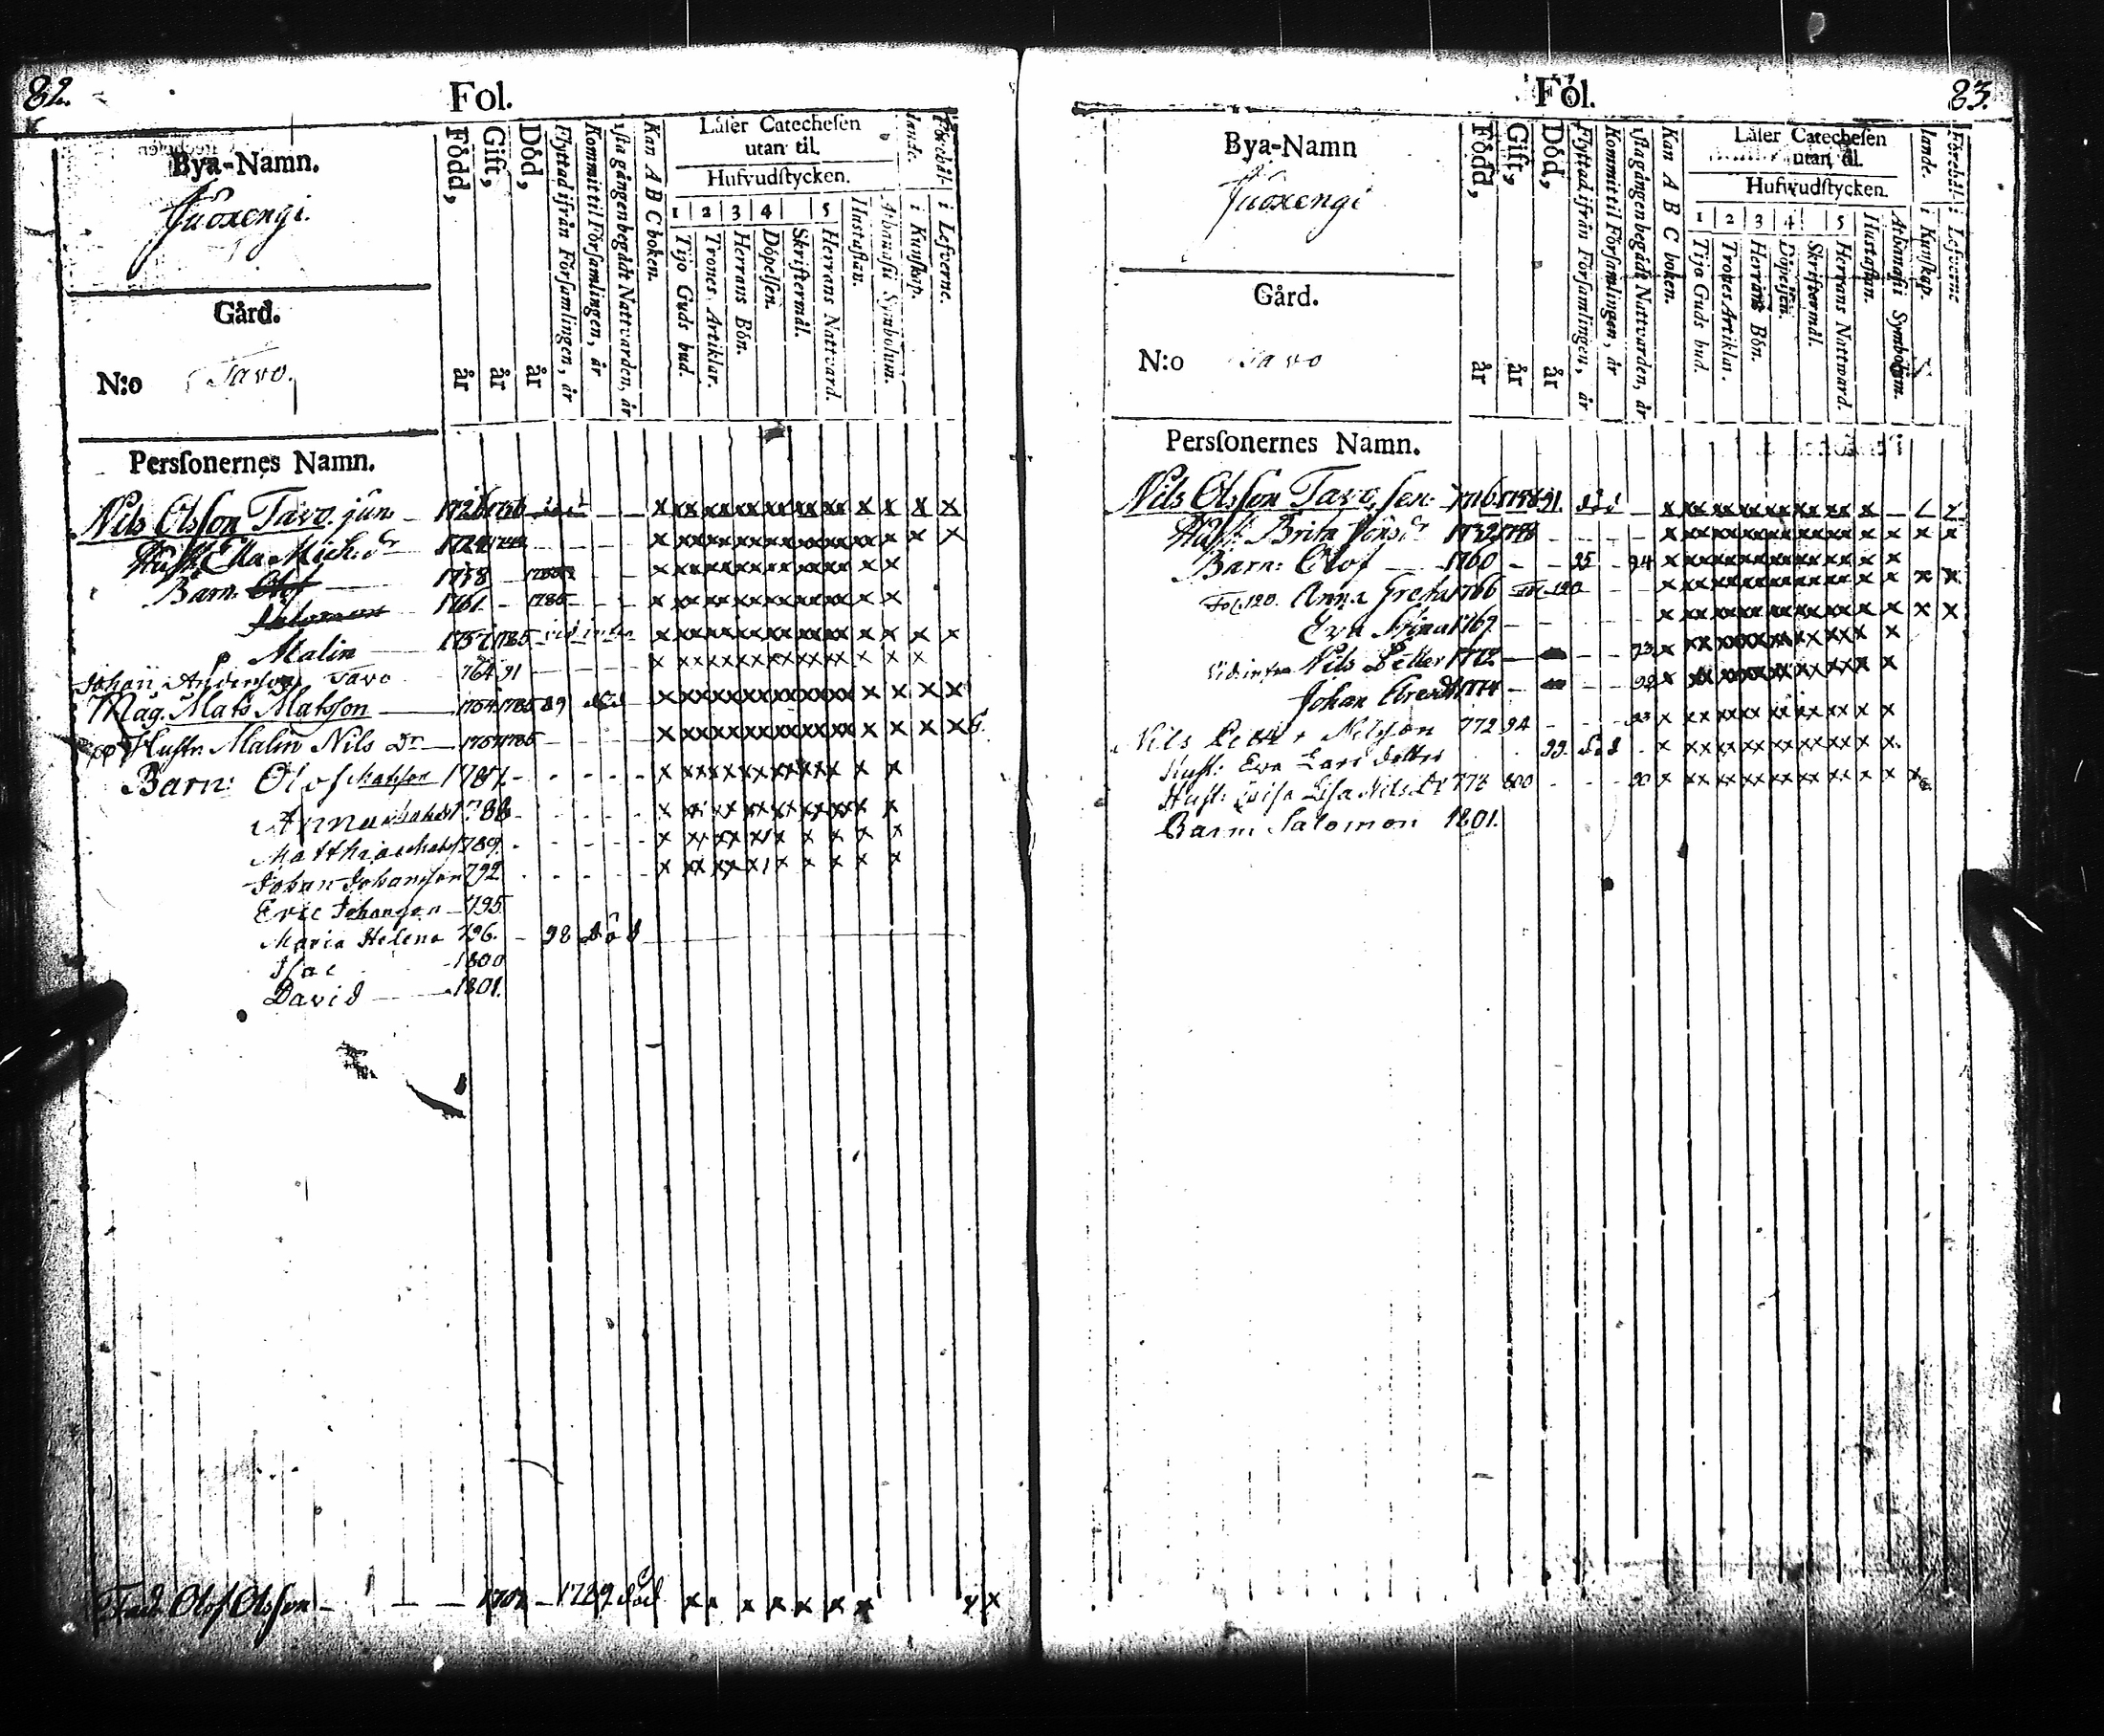 82.
Fol.
Bya-Namn.
Juoxengi.
Gård.
N:o Tavo.
Personernes Namn.
Född, år
Gift, år
Död, år
Flyttad ifrån Församlingen, år
Kommit til Församlingen, år
1sta gången begådt Nattvarden, år
Kan A B C boken.
Låser Catechesen
utan til.
Hufvudstycken.
1 2 3 4 5
Tijo Guds bud.
Trones Artiklar.
Herrans Bön.
Döpelsen.
Skriftermål.
Herrans Nattvard.
Hustaflan.
Athanasii Symbolum.
Förehållande i Kunskap.
i Lefverne.
Nils Olsson Tavo. jun 1726 1756
Hust. Ella Mich. dr 1724
Barn: Olof 1758
Salomon 1761 1785
Malin 1757 1785 vid infra
Johan Anderson Tavo 764 91
Måg. Mats Matsson 1754 1785 89 död
Hustr. Malin Nils Dr 1757 1785
Barn: Olof Matsson 1787
Anna 1788
Matthias 1789
Johan Johansson 792
Eric Johanson 795
Maria Helena 796. 98 död
Isac 1800
David 1801.
Fad. Olof Olsson 1789 död
83.
Fol.
Bya-Namn
Juoxengi
Gård.
N:o Tavo
Personernes Namn.
Född, år
Gift, år
Död, år
Flyttad ifrån Församlingen, år
Kommit til Församlingen, år
1sta gången begådt Nattvarden, år
Kan A B C boken.
Låser Catechesen
utan til.
Hufvudstycken.
1 2 3 4 5
Tijo Guds bud.
Trones Artiklar.
Herrans Bön.
Döpelsen.
Skriftermål.
Herrans Nattvard.
Hustaflan.
Athanasii Symbolum.
Förehållande i Kunskap.
i Lefverne
Nils Olsson Tavo, sen: 1716 1758 91. död
Hust: Brita Jöns dr 1732 1758
Barn: Olof 1760 95 94
Fol. 120. Anna Greta 1766 Fol. 120
Eva Stina 1769
Vid infra Nils Petter 1772 93
Johan Evert 1774 92
Nils Petter Nilsson 772 94 93
Hust: Eva Lars dotter 99. död
Hust: Lisa Nils Dr 778 800 90
Barn Salomon 1801.